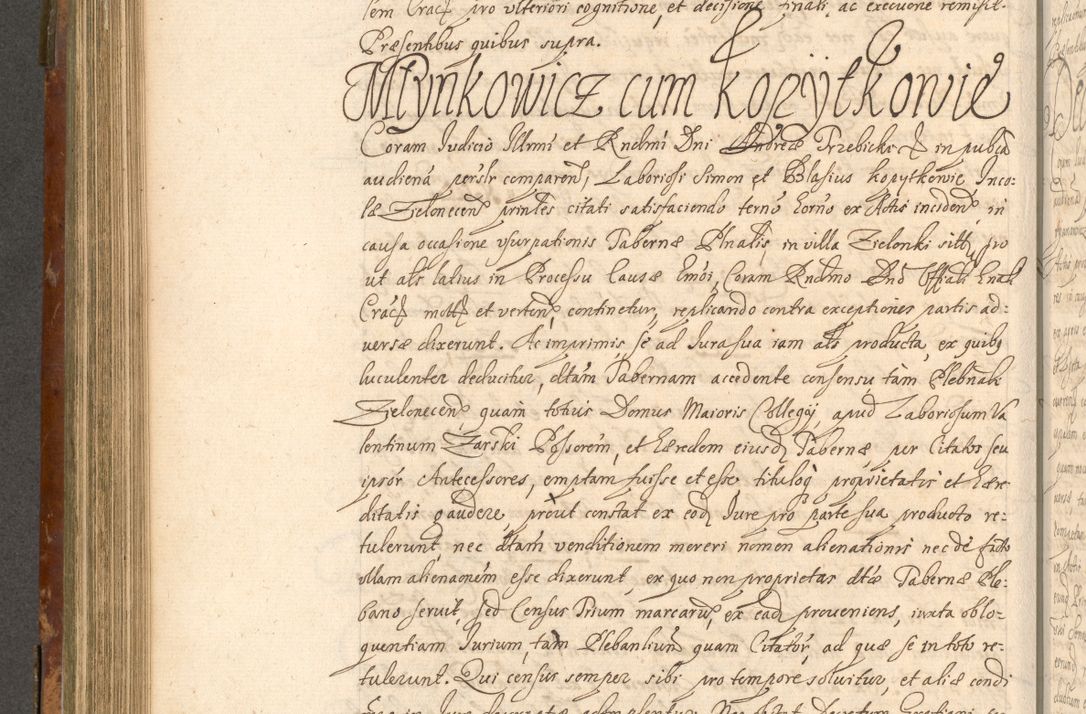 lem Crac̃ pro ulteriori cognitione, et decisione finali, ac executione remisit.
Præsentibus quibus supra.
Młynkowicz cum Kopytkowie
Coram Judicio Illrmi et Rndmi Dni Andreæ Trzebicki in publca
audiena persлr comparen, Laboriosi Simon et Blasius Kopytkowie Inco-
læ Zielonecen printes citati satisfaciendo terno horno ex Actis inciden, in
causa occasione usurpationis Tabernæ Plnalis in villa Zielonki sitt, pro
ut als latius in Processu Causæ hmoi, Coram Rndmo Dnd Offiali Gnali
Crac mott et verten, continetur, replicando contra exceptiones partis ad-
versæ dixerunt. Ac imprimis, se ad Jura sua iam als producta, ex quibq
luculenter deducitur, dtam Tabernam accedente consensu, tam Plebnali
Zielonecen quam totius Domus Maioris Collegij, apud Laboriosum Va
lentinum Zarski Possorem, et hæredem eiusd Tabernæ, per Citatos seu
ipsor Antecessores, emptam fuisse et esse tituloq proprietatis et hære
ditatis gaudere, prout constat ex eod Jure pro parte sua producto re-
tulerunt, nec dtam venditionem mereri nomen alienationis nec de facto
ullam alienaonem esse dixerunt, ex quo non proprietas dtæ Tabernæ Ple-
bano servit, sed Census Trium marcaru, ex ead proveniens, iuxta oblo-
quentiam Jurium, tam Plebanliu quam Citator, ad quæ se in toto re-
tulerunt. Qui census semper sibi pro tempore solvitur, et aliæ condi